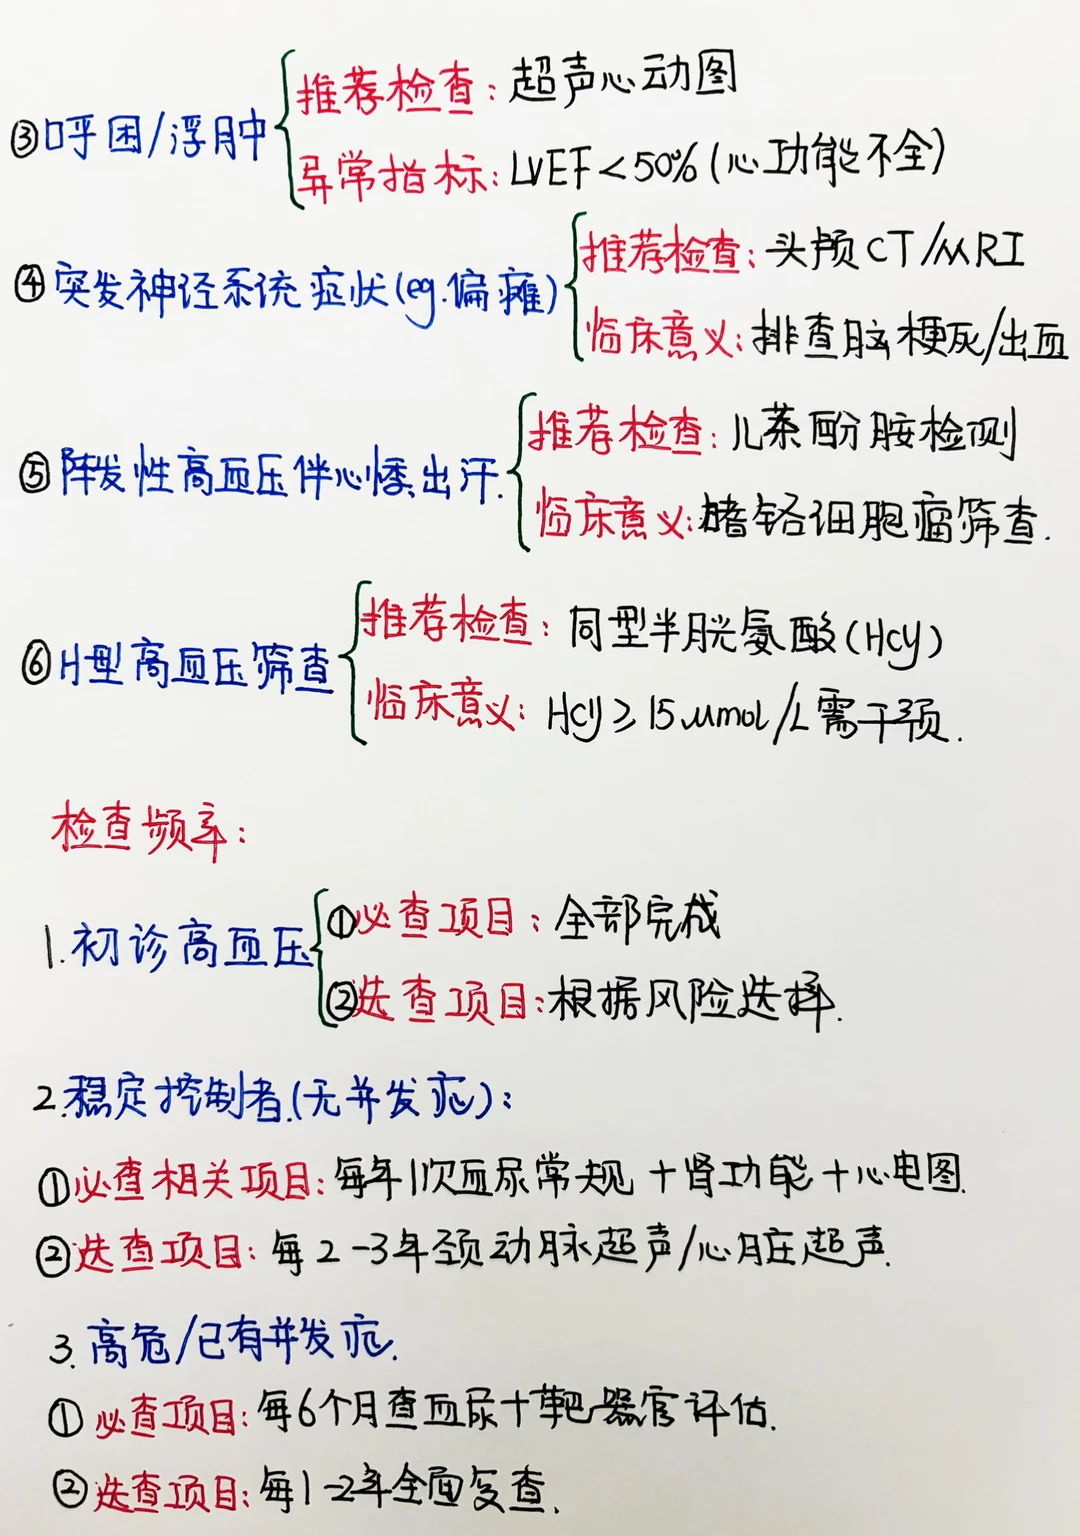 ③呼困/浮肿
推荐检查：超声心动图
异常指标：LVEF<50%(心功能不全)
④突发神经系统症状(eg.偏瘫)
推荐检查：头颅CT/MRI
临床意义：排查脑梗死/出血
⑤阵发性高血压伴心悸出汗.
推荐检查：儿茶酚胺检测
临床意义：嗜铬细胞瘤筛查.
⑥H型高血压筛查
推荐检查：同型半胱氨酸(Hcy)
临床意义：Hcy≥15μmol/L需干预.
检查频率：
1.初诊高血压
①必查项目：全部完成
②选查项目：根据风险选择.
2.稳定控制者.(无并发症)：
①必查相关项目：每年1次血尿常规+肾功能+心电图.
②选查项目：每2-3年颈动脉超声/心脏超声.
3.高危/已有并发症.
①必查项目：每6个月查血尿+靶器官评估.
②选查项目：每1-2年全面复查.